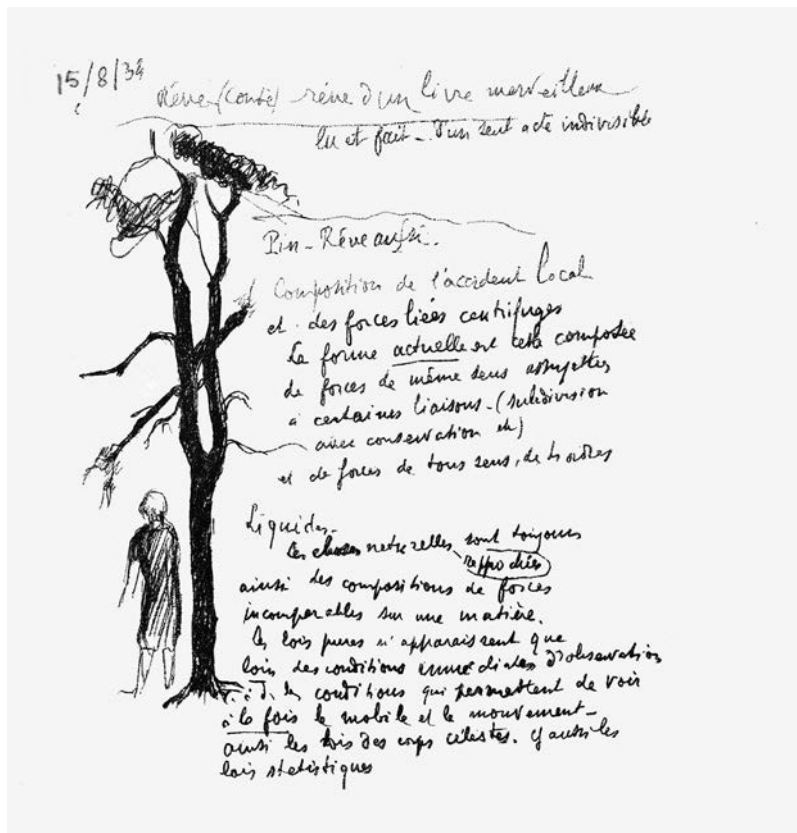 15/8/34
Rêve (conte) rêve d'un livre merveilleux
lu et fait - d'un seul acte indivisible
Pin - Rêve aussi -
Composition de l'accident local
et des forces liées centrifuges
La forme actuelle est cette composée
de forces de même sens assujetties
à certaines liaisons - (subdivision
avec conservation etc)
et de forces de tous sens, de ts ordres
Liquides -
Les choses naturelles sont toujours
rapprochées
ainsi des compositions de forces
incomparables sur une matière.
Les lois pures n'apparaissent que
loin des conditions immédiates d'observation
c. à. d. les conditions qui permettent de voir
à la fois le mobile et le mouvement -
ainsi les lois des corps célestes. Et aussi les
lois statistiques